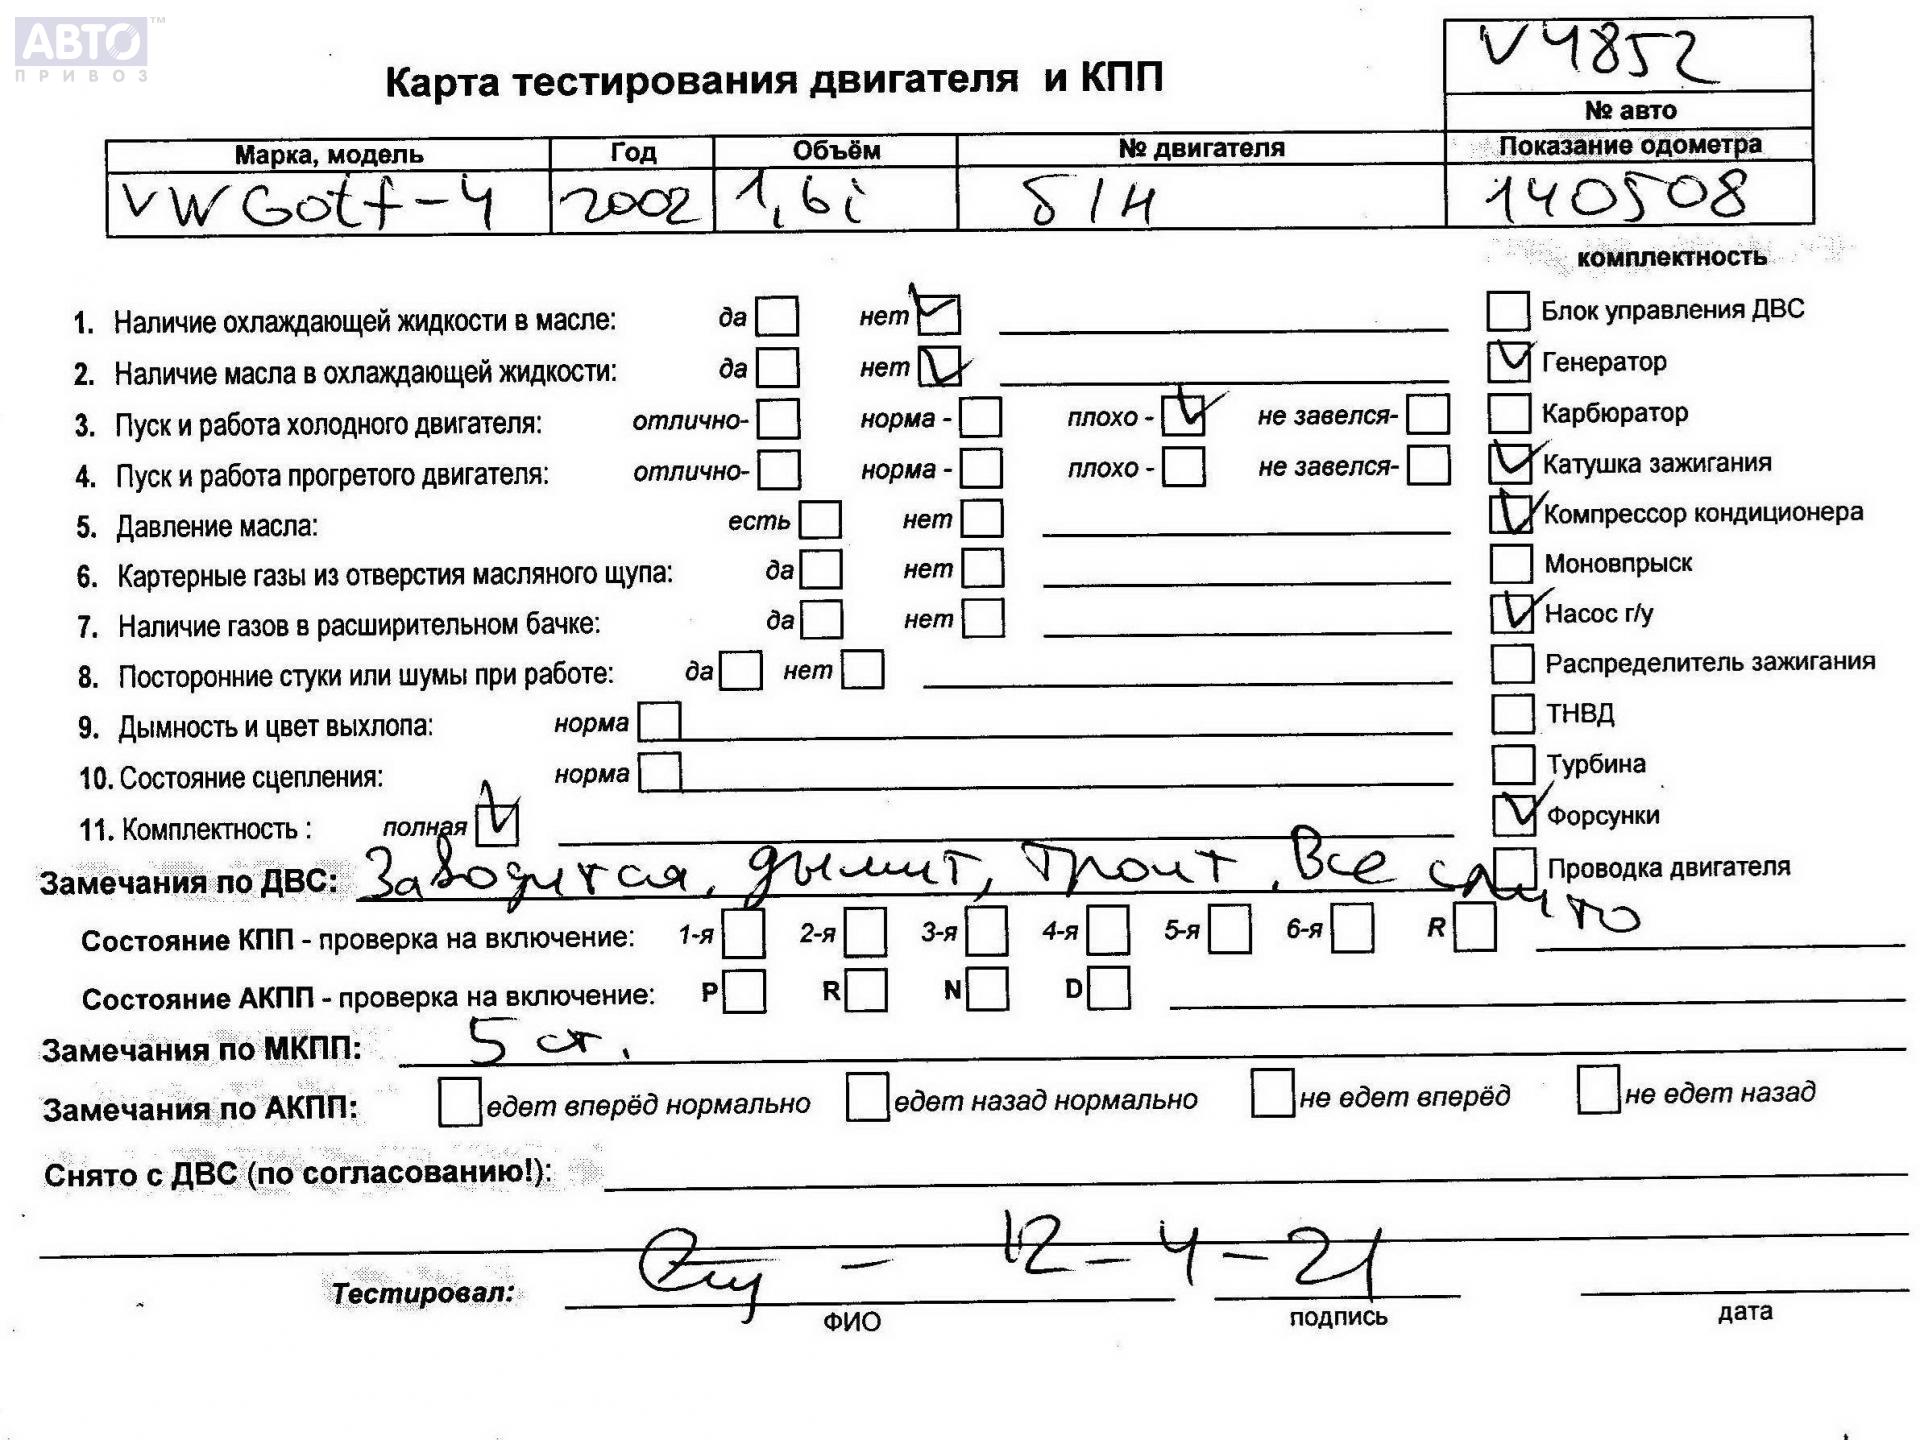 АВТО™
ПРИВОЗ
V4852
Карта тестирования двигателя и КПП
№ авто
Марка, модель Год Объём № двигателя Показание одометра
VW Golf-4 2002 1,6i б/н 140508
комплектность
1. Наличие охлаждающей жидкости в масле: да нет Блок управления ДВС
2. Наличие масла в охлаждающей жидкости: да нет Генератор
3. Пуск и работа холодного двигателя: отлично- норма - плохо - не завелся- Карбюратор
4. Пуск и работа прогретого двигателя: отлично- норма - плохо - не завелся- Катушка зажигания
5. Давление масла: есть нет Компрессор кондиционера
6. Картерные газы из отверстия масляного щупа: да нет Моновпрыск
7. Наличие газов в расширительном бачке: да нет Насос г/у
8. Посторонние стуки или шумы при работе: да нет Распределитель зажигания
9. Дымность и цвет выхлопа: норма ТНВД
10. Состояние сцепления: норма Турбина
11. Комплектность : полная Форсунки
Замечания по ДВС: Заводится, дымит, троит. Все слито Проводка двигателя
Состояние КПП - проверка на включение: 1-я 2-я 3-я 4-я 5-я 6-я R
Состояние АКПП - проверка на включение: P R N D
Замечания по МКПП: 5 ст.
Замечания по АКПП: едет вперёд нормально едет назад нормально не едет вперёд не едет назад
Снято с ДВС (по согласованию!):
Тестировал: - 12-4-21
ФИО подпись дата